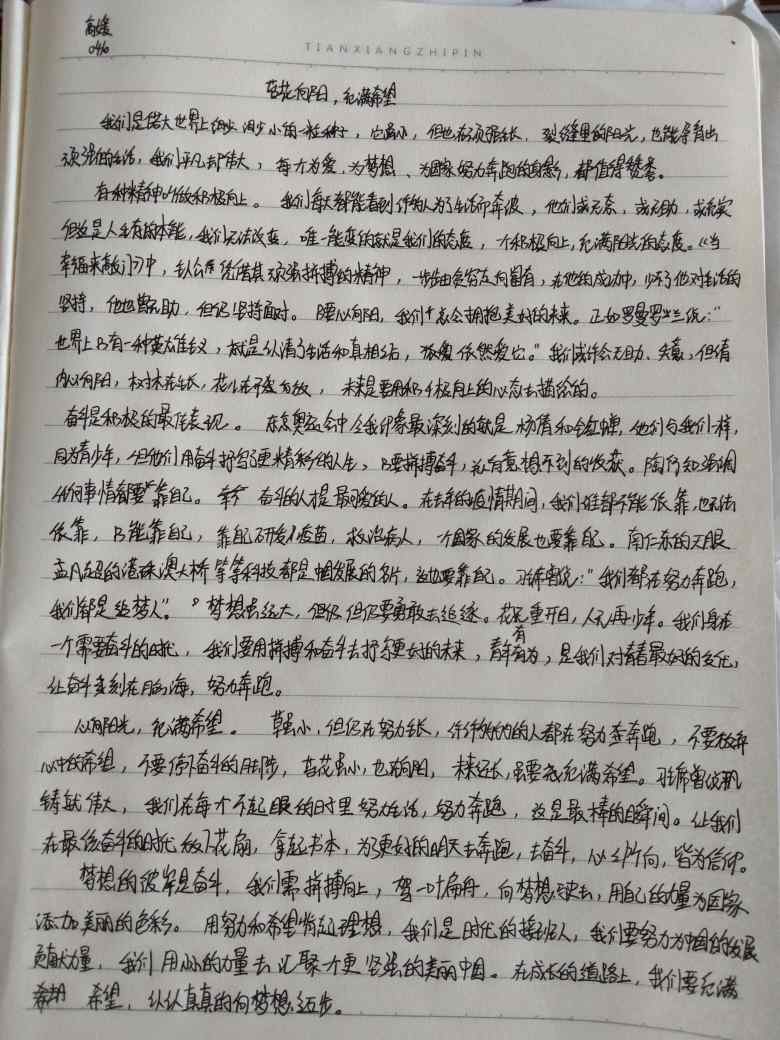 高媛
0416
TIANXIANGZHIPIN
苔花向阳,充满希望
我们是偌大世界上的小小的一粒种子,它虽小,但也在顽强生长,裂缝里的阳光,也能孕育出
顽强的生活,我们平凡却伟大,每个为爱、为梦想、为国家努力奔跑的身影,都值得赞美。
有种精神叫做积极向上。我们每天都能看到许许多多人为了生活而奔波,他们或无奈,或无助,或充实
但这是人生有的本能,我们无法改变,唯一能变的就是我们的态度,一个积极向上,充满阳光的态度。《当
幸福来敲门》中,主人公凭借其顽强拼搏的精神,一步步由贫穷走向富有,在他的成功中,少不了他对生活的
坚持,他也曾无助,但仍坚持面对。只要心向阳,我们才总会拥抱美好的未来。正如罗曼罗兰说:"
世界上只有一种英雄主义,就是认清了生活和真相之后,依然爱它。"我们或许会无助、失意,但请
内心向阳,树木在生长,花儿在不变为放,未来是要用积极向上的心态去描绘的。
奋斗是积极的最佳表现。东京奥运会中令我印象最深刻的就是杨倩和全红婵,他们与我们一样,
同为青少年,但他们用奋斗抒写了更精彩的人生,只要拼搏奋斗,就有意想不到的收获。陶行知强调
任何事情都要"靠自己。奋斗的人是最可爱的人。在去年的疫情期间,我们谁都不能依靠,也无法
依靠,只能靠自己,靠自己研发疫苗,救治病人,一个国家的发展也要靠自己。南仁东的天眼
孟凡超的港珠澳大桥等等科技都是中国发展的名片,这也要靠自己。习主席曾说:"我们都在努力奔跑,
我们都是追梦人"。梦想虽远大,但仍但仍要勇敢去追逐。花无重开日,人无再少年。我们身在
一个需要奋斗的时代,我们要用拼搏和奋斗去抒写更好的未来,青年有为,是我们对青春最好的交代,
让奋斗多刻在脑海,努力奔跑。
心向阳光,充满希望。草虽小,但仍在努力生长,许许多多的人都在努力奔跑,不要放弃
心中的希望,不要停下奋斗的脚步,苔花虽小,也有向阳,未来还长,虽要我充满希望。习主席曾说平凡
铸就伟大,我们在每个不起眼的时里努力生活,努力奔跑,这是最棒的瞬间。让我们
在最该奋斗的时代放下花扇,拿起书本,为了更好的明天去奔跑,去奋斗,心之所向,皆为信仰。
梦想的彼岸是奋斗,我们需拼搏向上,驾一叶扁舟,向梦想驶去,用自己的力量为国家
添加美丽的色彩。用努力和希望背起理想,我们是时代的接班人,我们要努力为中国的发展
贡献力量,我们用小小的力量去汇聚一个更坚强的美丽中国。在成长的道路上,我们要充满
希望,认认真真的向梦想迈步。